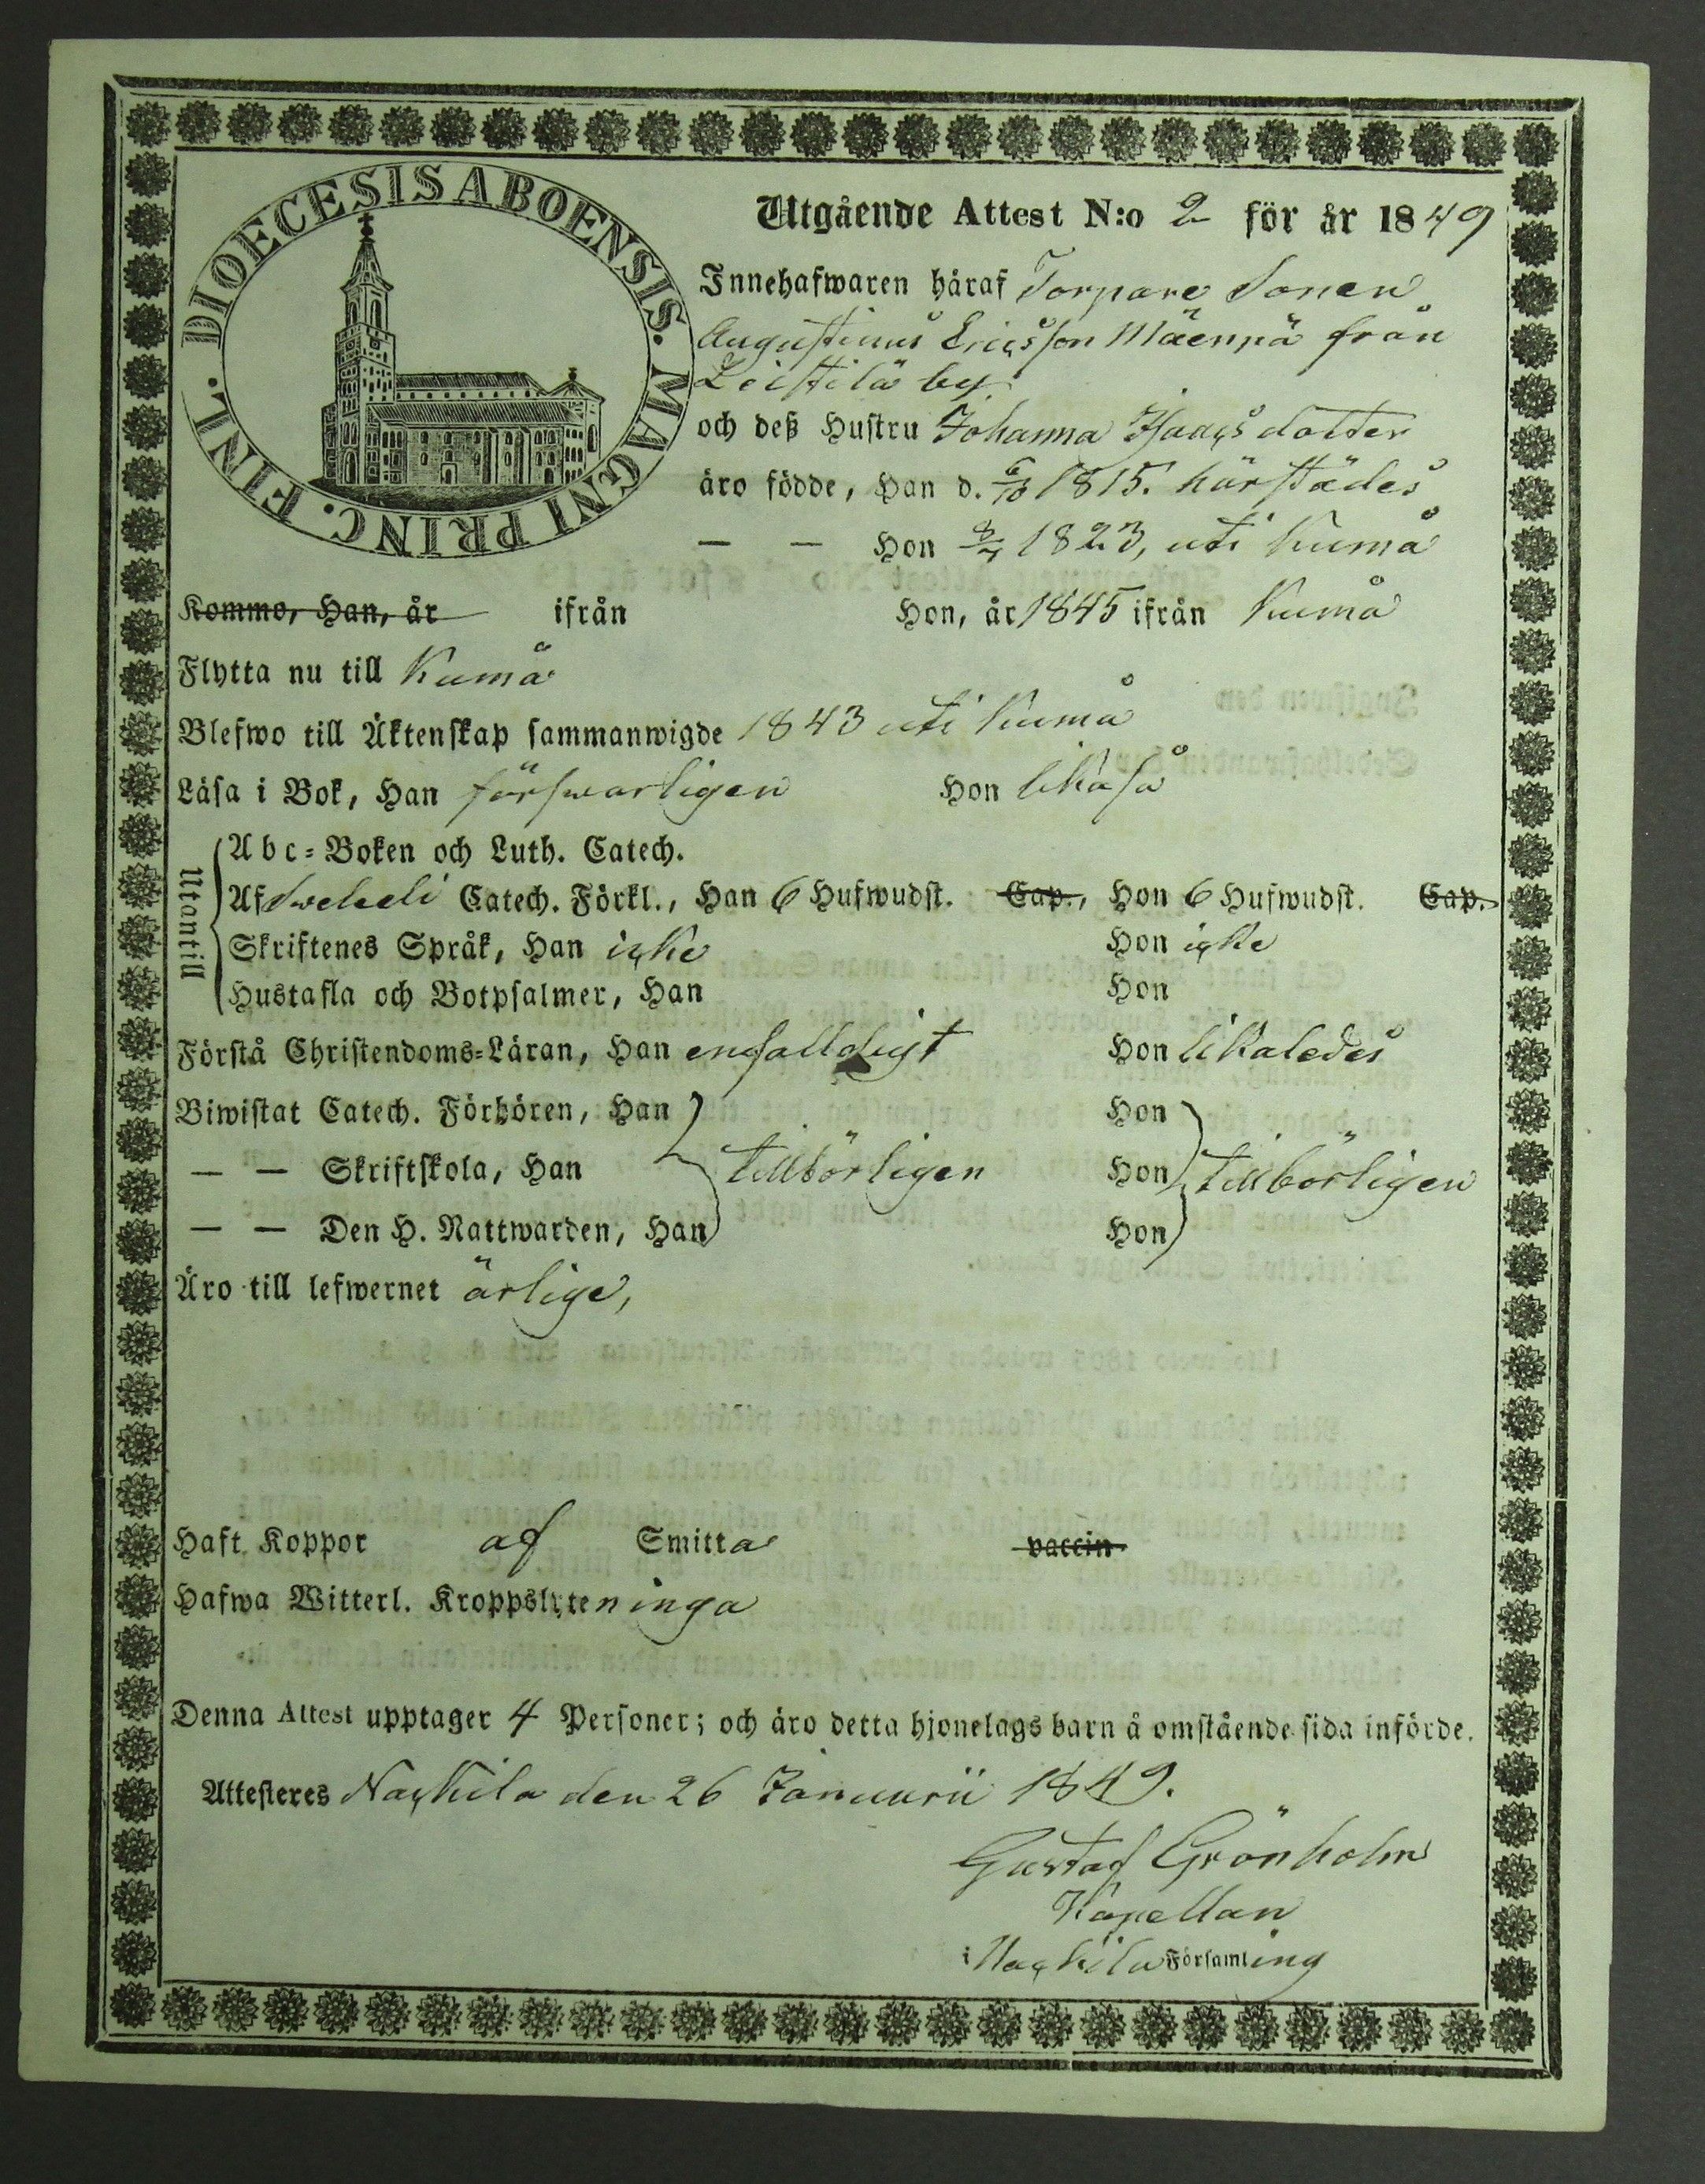 DIOECESIS ABOENSIS. MAGNI PRINC. FINL.
Utgående Attest N:o 2 för år 1849
Innehafwaren häraf Torpare Sonen
Augustinus Ericsson Mäenpä från
Leistilä by
och deß Hustru Johanna Isaacs dotter
äro födde, Han d. 6/10 1815. härstädes
— — Hon 8/7 1823, uti Kumå
Kommo, Han, år ifrån Hon, år 1845 ifrån Kumå
Flytta nu till Kumå
Blefwo till Äktenskap sammanwigde 1843 uti Kumå
Läsa i Bok, Han förswarligen Hon likaså
Utantill
Abc-Boken och Luth. Catech.
Af Swebeli Catech. Förkl., Han 6 Hufwudst. Cap., Hon 6 Hufwudst. Cap.
Skriftenes Språk, Han icke Hon icke
Hustafla och Botpsalmer, Han Hon
Förstå Christendoms-Läran, Han enfalldigt Hon likaledes
Biwistat Catech. Förhören, Han Hon
— — Skriftskola, Han tillbörligen Hon tillbörligen
— — Den H. Nattwarden, Han Hon
Äro till lefwernet ärlige,
Haft Koppor af Smitta vaccin
Hafwa Witterl. Kroppslyten inga
Denna Attest upptager 4 Personer; och äro detta hjonelags barn å omstående sida införde.
Attesteres Nackila den 26 Januarii 1849.
Gustaf Grönholm
Kapellan
i Nackila Församling